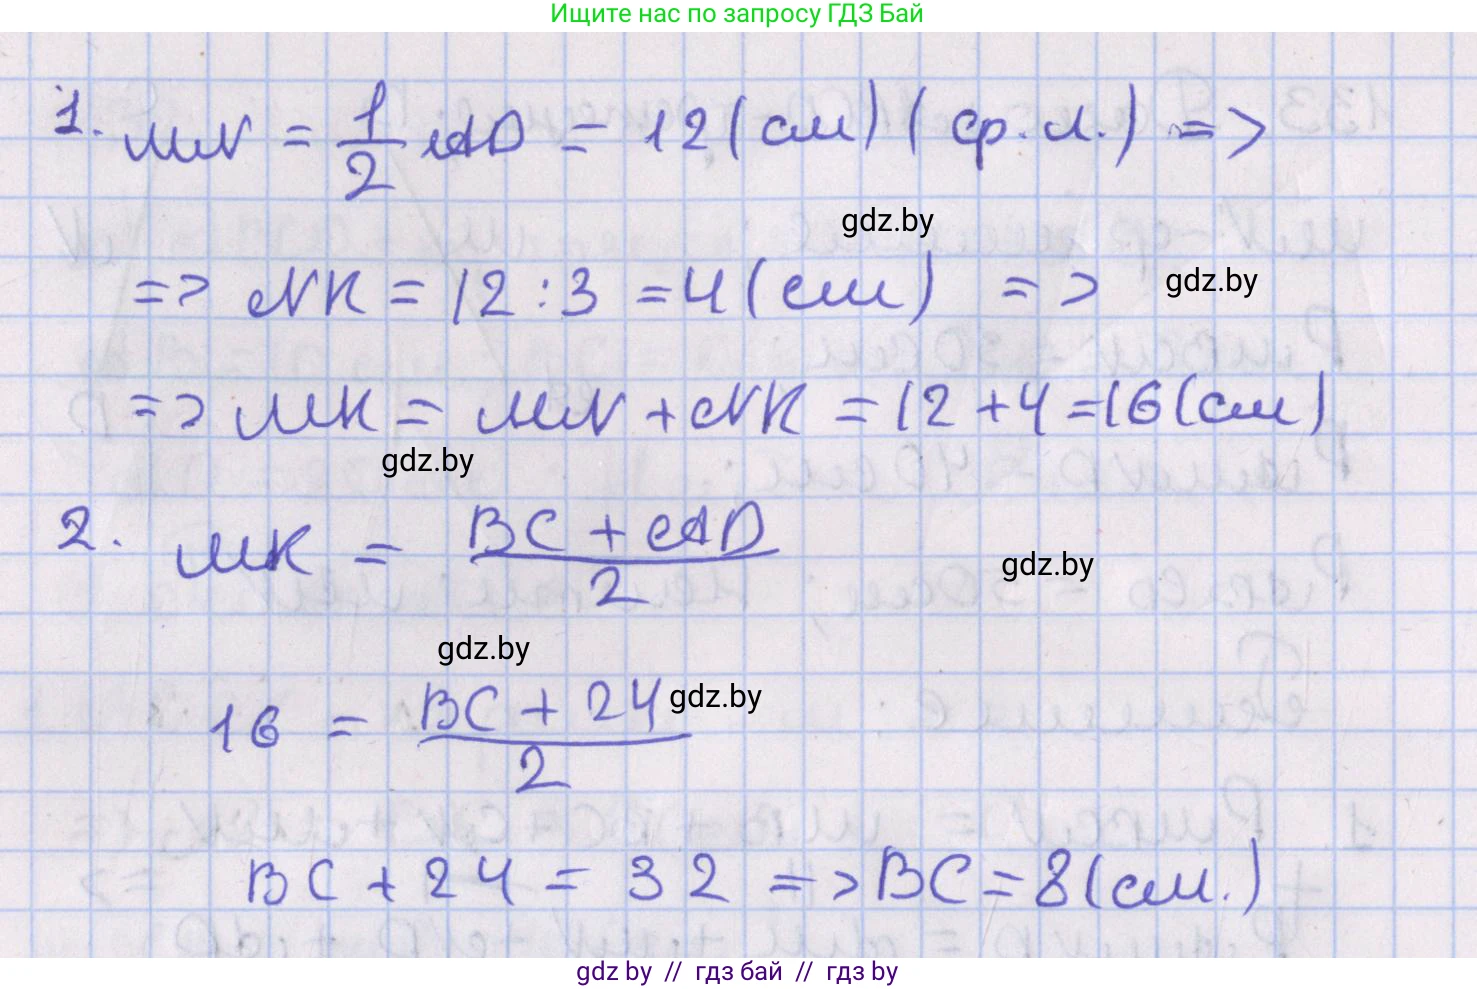 Ищите нас по запросу ГДЗ Бай
1. MN = 1/2 AD = 12 (см) (ср. л.) =>
gdz.by
=> NK = 12 : 3 = 4 (см) =>
gdz.by
=> MK = MN + NK = 12 + 4 = 16 (см)
gdz.by
2. MK = (BC + AD)/2
gdz.by
gdz.by
16 = (BC + 24)/2
gdz.by
BC + 24 = 32 => BC = 8 (см.)
gdz by // гдз бай // гдз by